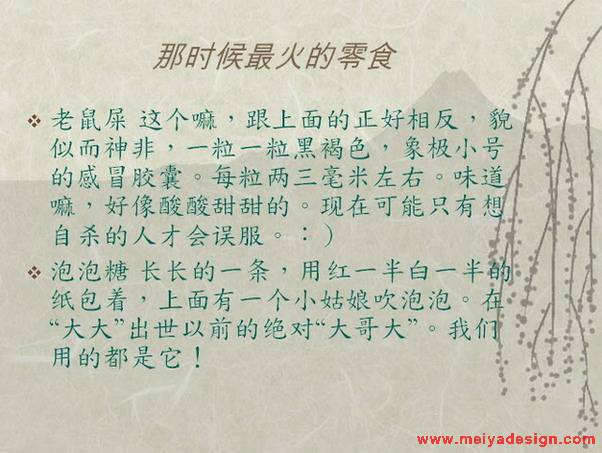 那时候最火的零食
❖ 老鼠屎 这个嘛，跟上面的正好相反，貌
似而神非，一粒一粒黑褐色，象极小号
的感冒胶囊。每粒两三毫米左右。味道
嘛，好像酸酸甜甜的。现在可能只有想
自杀的人才会误服。：）
❖ 泡泡糖 长长的一条，用红一半白一半的
纸包着，上面有一个小姑娘吹泡泡。在
“大大”出世以前的绝对“大哥大”。我们
用的都是它！
www.meiyadesign.com